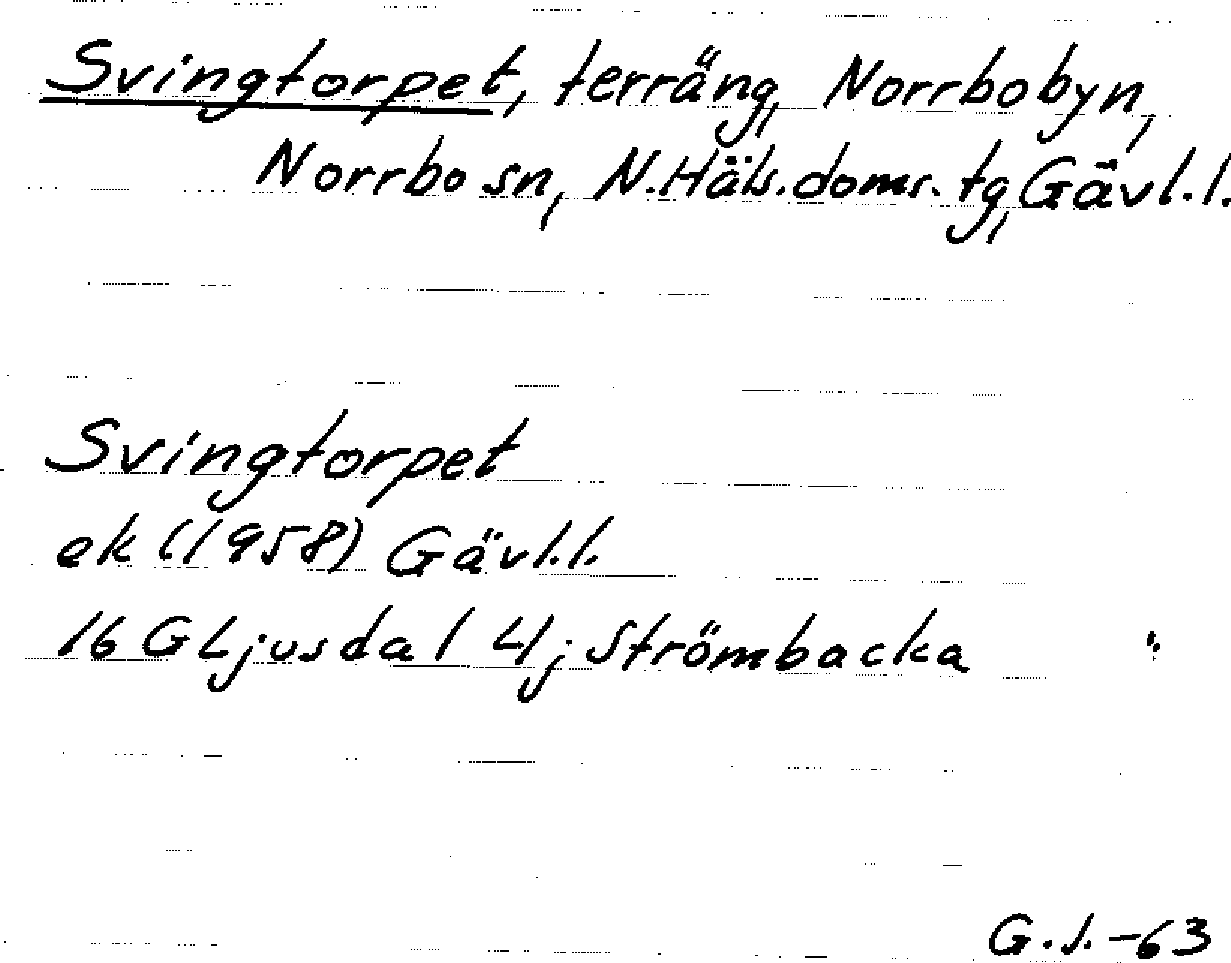 Svingtorpet, terräng, Norrbobyn,
Norrbo sn, N. Häls. doms. tg, Gävl. l.
Svingtorpet
ek (1958) Gävl. l.
16 G Ljusdal 4 j Strömbacka
G. J. -63